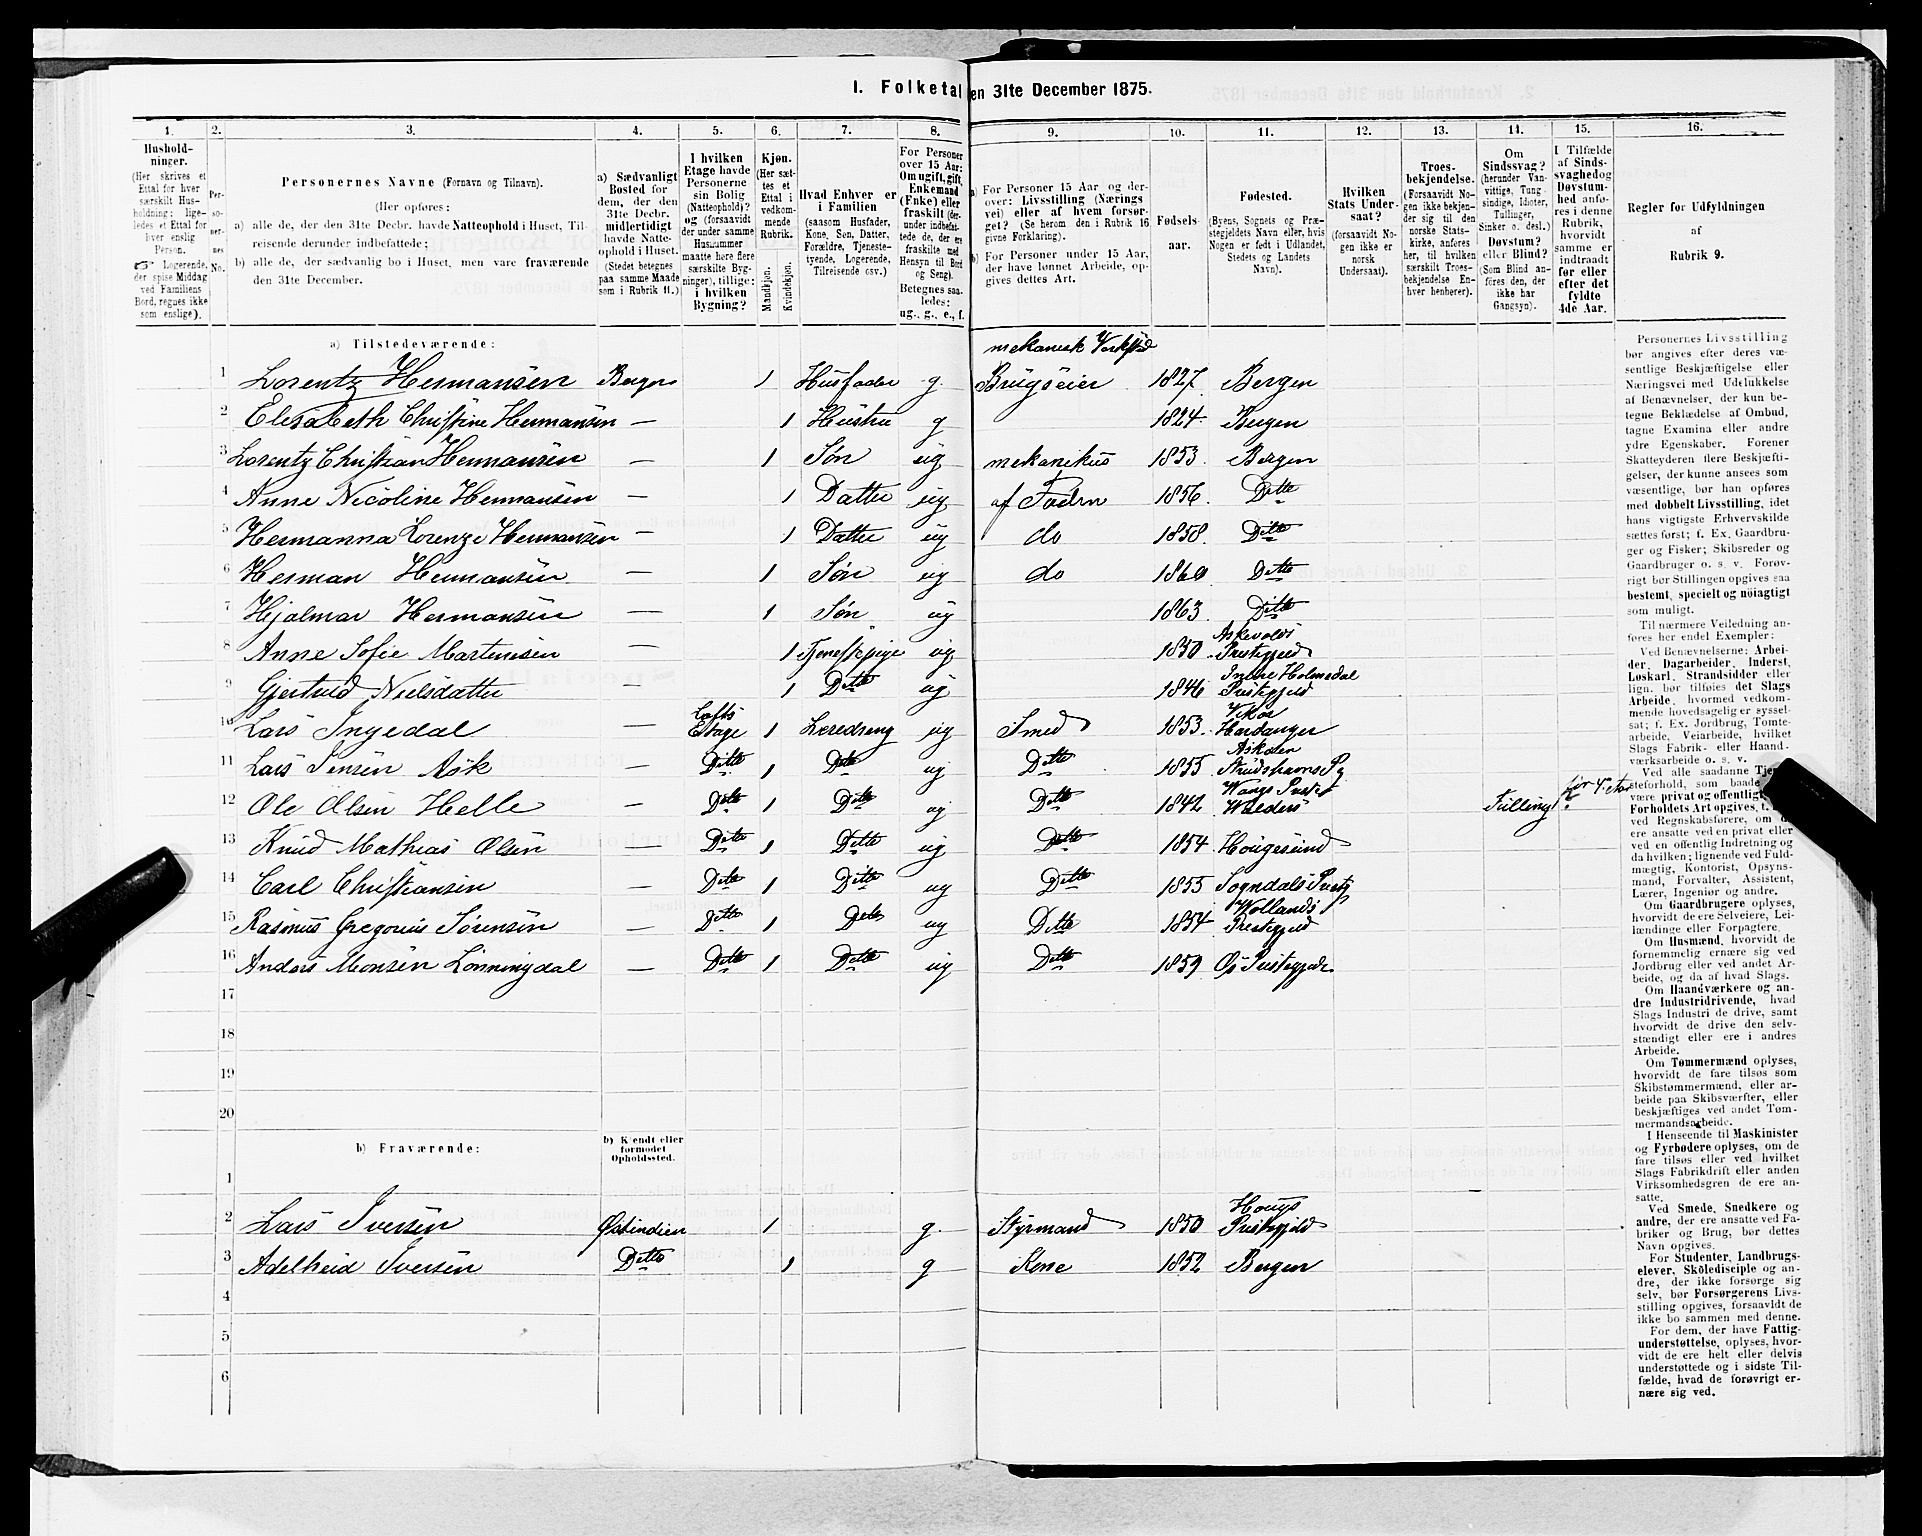 1. Folketal den 31te December 1875.
1. 2. 3. 4. 5. 6. 7. 8. 9. 10. 11. 12. 13. 14. 15. 16.
Hushold-
ninger.
(Her skrives et
Ettal for hver
særskilt Hus-
holdning; lige-
ledes et Ettal for
hver enslig
Person.
☞ Logerende,
der spise Middag
ved Familiens
Bord, regnes ikke
som enslige).
Per-
so-
ner-
nes
No.
Personernes Navne (Fornavn og Tilnavn).
(Her opføres:
a) alle de, der den 31te Decbr. havde Natteophold i Huset, Til-
reisende derunder indbefattede;
b) alle de, der sædvanlig bo i Huset, men vare fraværende
den 31te December.
a) Sædvanligt
Bosted for
dem, der den
31te Decbr.
midlertidigt
havde Natte-
ophold i Huset.
(Stedet betegnes
paa samme Maade
som i Rubrik 11.)
I hvilken
Etage havde
Personerne
sin Bolig
(Natteophold)?
og (forsaavidt
der under samme
Husnummer
maatte høre flere
særskilte Byg-
ninger), tillige:
i hvilken
Bygning?
Kjøn.
(Her sæt-
tes et
Ettal i
vedkom-
mende
Rubrik.
Mandkjøn.
Kvindekjøn.
Hvad Enhver er
i Familien
(saasom Husfader,
Kone, Søn, Datter,
Forældre, Tjeneste-
tyende, Logerende,
Tilreisende osv.)
For Personer
over 15 Aar:
Om ugift, gift,
Enkemand
(Enke) eller
fraskilt (der-
under indbefat-
tede de, der ere
fraskilte med
Hensyn til Bord
og Seng).
Betegnes saa-
ledes:
ug., g., e., f.
a) For Personer 15 Aar og der-
over: Livsstilling (Nærings
vei) eller af hvem forsør-
get? (Se herom den i Rubrik 16
givne Forklaring).
b) For Personer under 15 Aar,
der have lønnet Arbeide, op-
gives dettes Art.
Fødsels-
aar.
Fødested.
(Byens, Sognets og Præ-
stegjeldets Navn eller, hvis
Nogen er født i Udlandet,
Stedets og Landets
Navn).
Hvilken
Stats Under-
saat?
(forsaavidt No-
gen ikke er
norsk
Undersaat).
Troes-
bekjendelse.
(Forsaavidt No-
gen ikke bekjen-
der sig til den
norske Stats-
kirke, anføres
her, til hvilken
særskilt Troes-
bekjendelse En-
hver henhører).
Om
Sindssvag?
(herunder Van-
vittige, Tung
sindige, Idioter,
Tullinger,
Sinker o. desl.)
Døvstum?
eller Blind?
(Som Blind an-
føres den, der
ikke har
Gangsyn).
I Tilfælde
af Sinds-
svaghed og
Døvstum-
hed anfø-
res i denne
Rubrik,
hvorvidt
samme er
indtraadt
før eller
efter det
fyldte
4de Aar.
Regler for Udfyldningen
af
Rubrik 9.
a) Tilstedeværende:
mekanisk Verksted
1 Lorentz Hermansen Bergen 1 Husfader g. Brugseier 1827. Bergen
2 Elisabeth Christine Hermansen — 1 Hustru g 1824. Bergen
3 Lorentz Christian Hermansen — 1 Søn ug mekanikus 1853. Bergen
4 Anne Nicoline Hermansen — 1 Datter ug af Fadrn 1856. Ditto
5 Hermanna Lorenze Hermansen — 1 Datter ug do 1858. Ditto
6 Herman Hermansen — 1 Søn ug do 1860 Ditto
7 Hjalmar Hermansen — 1 Søn ug 1863. Ditto
Askevolds
8 Anne Sofie Martinisen — 1 Tjenestepige ug 1850 Prestegjeld
Indre Holmedal
9 Gjertrud Nielsdatter — 1 Ditto ug 1846 Prestegjeld
Lofts Vikør
10 Lars Ingedal — Etage 1 Læredreng ug Smed 1853. Hardanger
Askøen
11 Lars Jensen Ask — Ditto 1 Ditto ug Ditto 1855
12 Ole Olsen Helle — Ditto 1 Ditto ug Ditto 1842 Walders Tulling før 4. Aar
13 Knud Mathias Olsen — Ditto 1 Ditto ug Ditto 1854 Hougesund
14 Carl Christiansen — Ditto 1 Ditto ug Ditto 1855 Sogndals Prestg
15 Rasmus Gregorius Sørensen — Ditto 1 Ditto ug Ditto 1854 Prestegjeld
16 Anders Monsen Lønningdal — Ditto 1 Ditto ug Ditto 1859 Os Prestegjeld
17
18
19
20
b) Fraværende:
b) Kjendt eller
formodet
Opholdssted.
1
Hougs
2 Lars Iversen Østindien 1 g. Styrmand 1850 Prestegjeld
3 Adelheid Iversen Ditto 1 g Kone 1852 Bergen
4
5
6
Personernes Livsstilling
bør angives efter deres væ-
sentlige Beskjæftigelse eller
Næringsvei med Udelukkelse
af Benævnelser, der kun be-
tegne Beklædelse af Ombud,
tagne Examina eller andre
ydre Egenskaber. Forener
Skatteyderen flere Beskjæfti-
gelser, der kunne ansees som
væsentlige, bør han opføres
med dobbelt Livsstilling, idet
hans vigtigste Erhvervskilde
sættes først; f. Ex. Gaardbru-
ger og Fisker; Skibsreder og
Gaardbruger o. s. v. Forøv-
rigt bør Stillingen opgives saa
bestemt, specielt og nöiagtigt
som muligt.
Til nærmere Veiledning an-
føres her endel Exempler:
Ved Benævnelserne: Arbei-
der, Dagarbeider, Inderst,
Løskarl, Strandsidder eller
lign. bør tilføies det Slags
Arbeide, hvormed vedkom-
mende hovedsagelig er syssel-
sat; f. Ex. Jordbrug, Tomte-
arbeide, Veiarbeide, hvilket
Slags Fabrik- eller Haand-
værksarbeide o. s. v.
Ved alle saadanne Tje-
steforhold, som baade
være privat og offentlig
Forholdets Art opgives,
ved Regnskabsførere, om d
ere ansatte ved en privat eller
ved en offentlig Indretning og
da hvilken; lignende ved Fuld-
mægtig, Kontorist, Opsyns-
mand, Forvalter, Assistent,
Lærer, Ingeniør og andre.
Om Gaardbrugere oplyses,
hvorvidt de ere Selveiere, Lei-
lændinge eller Forpagtere.
Om Husmænd, hvorvidt de
fornemmelig ernære sig ved
Jordbrug eller ved andet Ar-
beide, og da af hvad Slags.
Om Haandværkere og an-
dre Industridrivende, hvad
Slags Industri de drive, samt
hvorvidt de drive den selv-
stændigt eller ere i andres
Arbeide.
Om Tømmermænd oplyses,
hvorvidt de fare tilsøs som
Skibstømmermænd, eller ar-
beide paa Skibsværfter, eller
beskjæftiges ved andet Tøm-
mermandsarbeide.
I Henseende til Maskinister
og Fyrbødere oplyses, om de
fare tilsøs eller ved hvilket
Slags Fabrikdrift eller anden
Virksomhedsgren de ere an-
satte.
Ved Smede, Snedkere og
andre, der ere ansatte ved Fa-
briker og Brug, bør dettes
Navn opgives.
For Studenter, Landbrugs-
elever, Skôledisciple og an-
dre, der ikke forsørge sig
selv, bør Forsørgerens Livs-
stilling opgives, forsaavidt de
ikke bo sammen med denne.
For dem, der have Fattig-
understøttelse, oplyses, hvor-
vidt de ere helt eller delvis
understøttede og i sidste Til-
fælde, hvad de forøvrigt er-
nære sig ved.